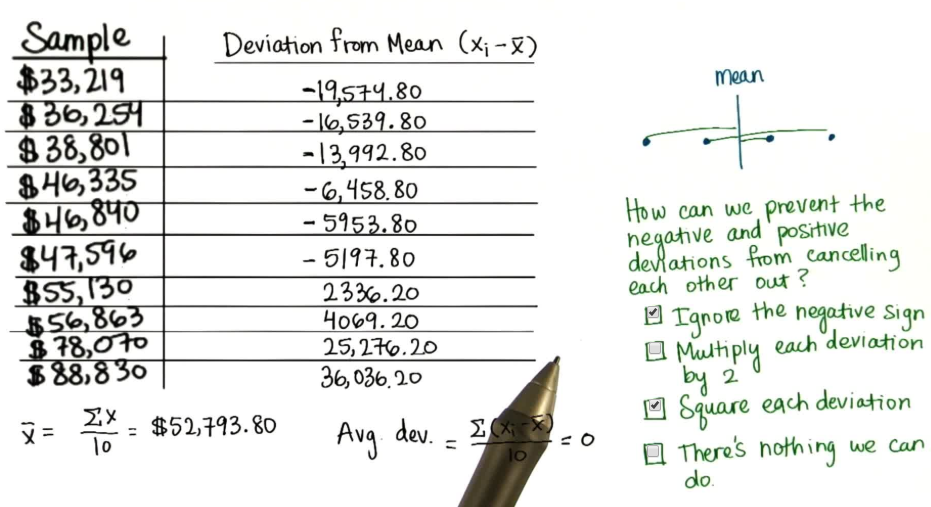 Sample
Deviation from Mean (xᵢ - x̄)
$33,219 -19,574.80
$36,254 -16,539.80
$38,801 -13,992.80
$46,335 -6,458.80
$46,840 -5953.80
$47,596 -5197.80
$55,130 2336.20
$56,863 4069.20
$78,070 25,276.20
$88,830 36,036.20
x̄ = Σx/10 = $52,793.80
Avg. dev. = Σ(xᵢ - x̄)/10 = 0
mean
How can we prevent the
negative and positive
deviations from cancelling
each other out?
Ignore the negative sign
Multiply each deviation
by 2
Square each deviation
There's nothing we can
do.